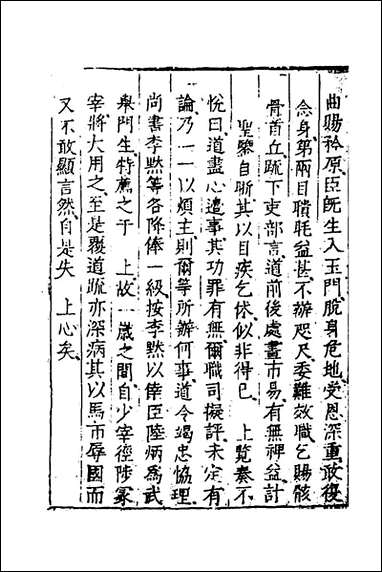 曲賜矜原臣旣生入玉門脫身危地受恩深重敢復
念身第兩目聵眊益甚不辦咫尺委難效職乞賜骸
骨首丘疏下吏部言道前後處畫市易有無裨益計
聖鑒自晰其以目疾乞休似非得已　上覽奏不
悅曰道盡心邊事其功罪有無爾職司擬評未定有
論乃一一以煩主則爾等所辦何事道令竭忠協理
尚書李默等各降俸一級按李默以倖臣陸炳爲武
舉門生特薦之于　上故一歲之間自少宰徑陟冢
宰將大用之至是覆道疏亦深病其以馬市辱國而
又不敢顯言然自是失　上心矣